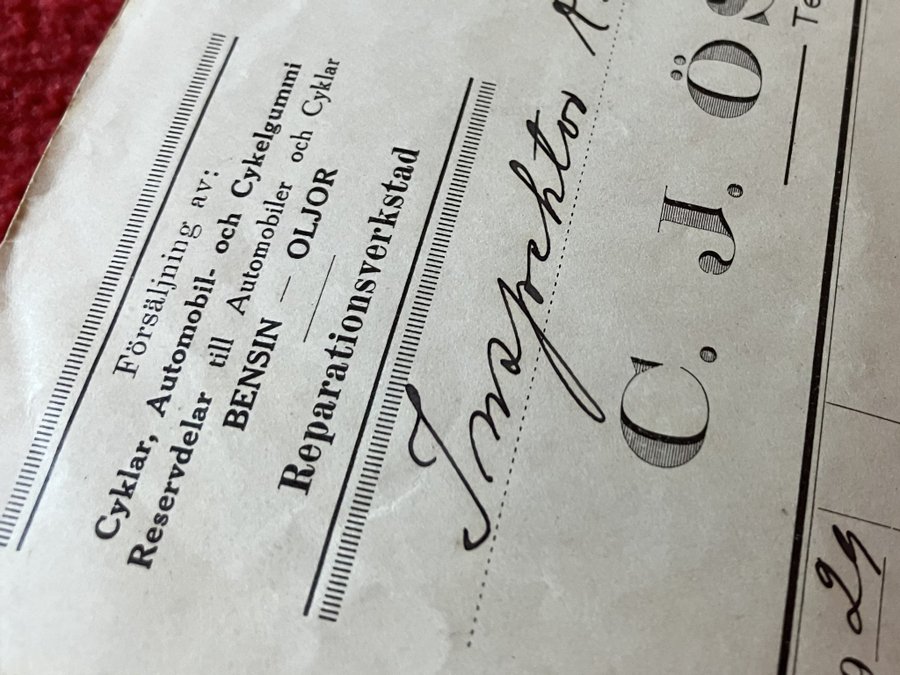 Försäljning av:
Cyklar, Automobil- och Cykelgummi
Reservdelar till Automobiler och Cyklar
BENSIN — OLJOR
Reparationsverkstad
Inspektor
C. J. Ö
Te
29